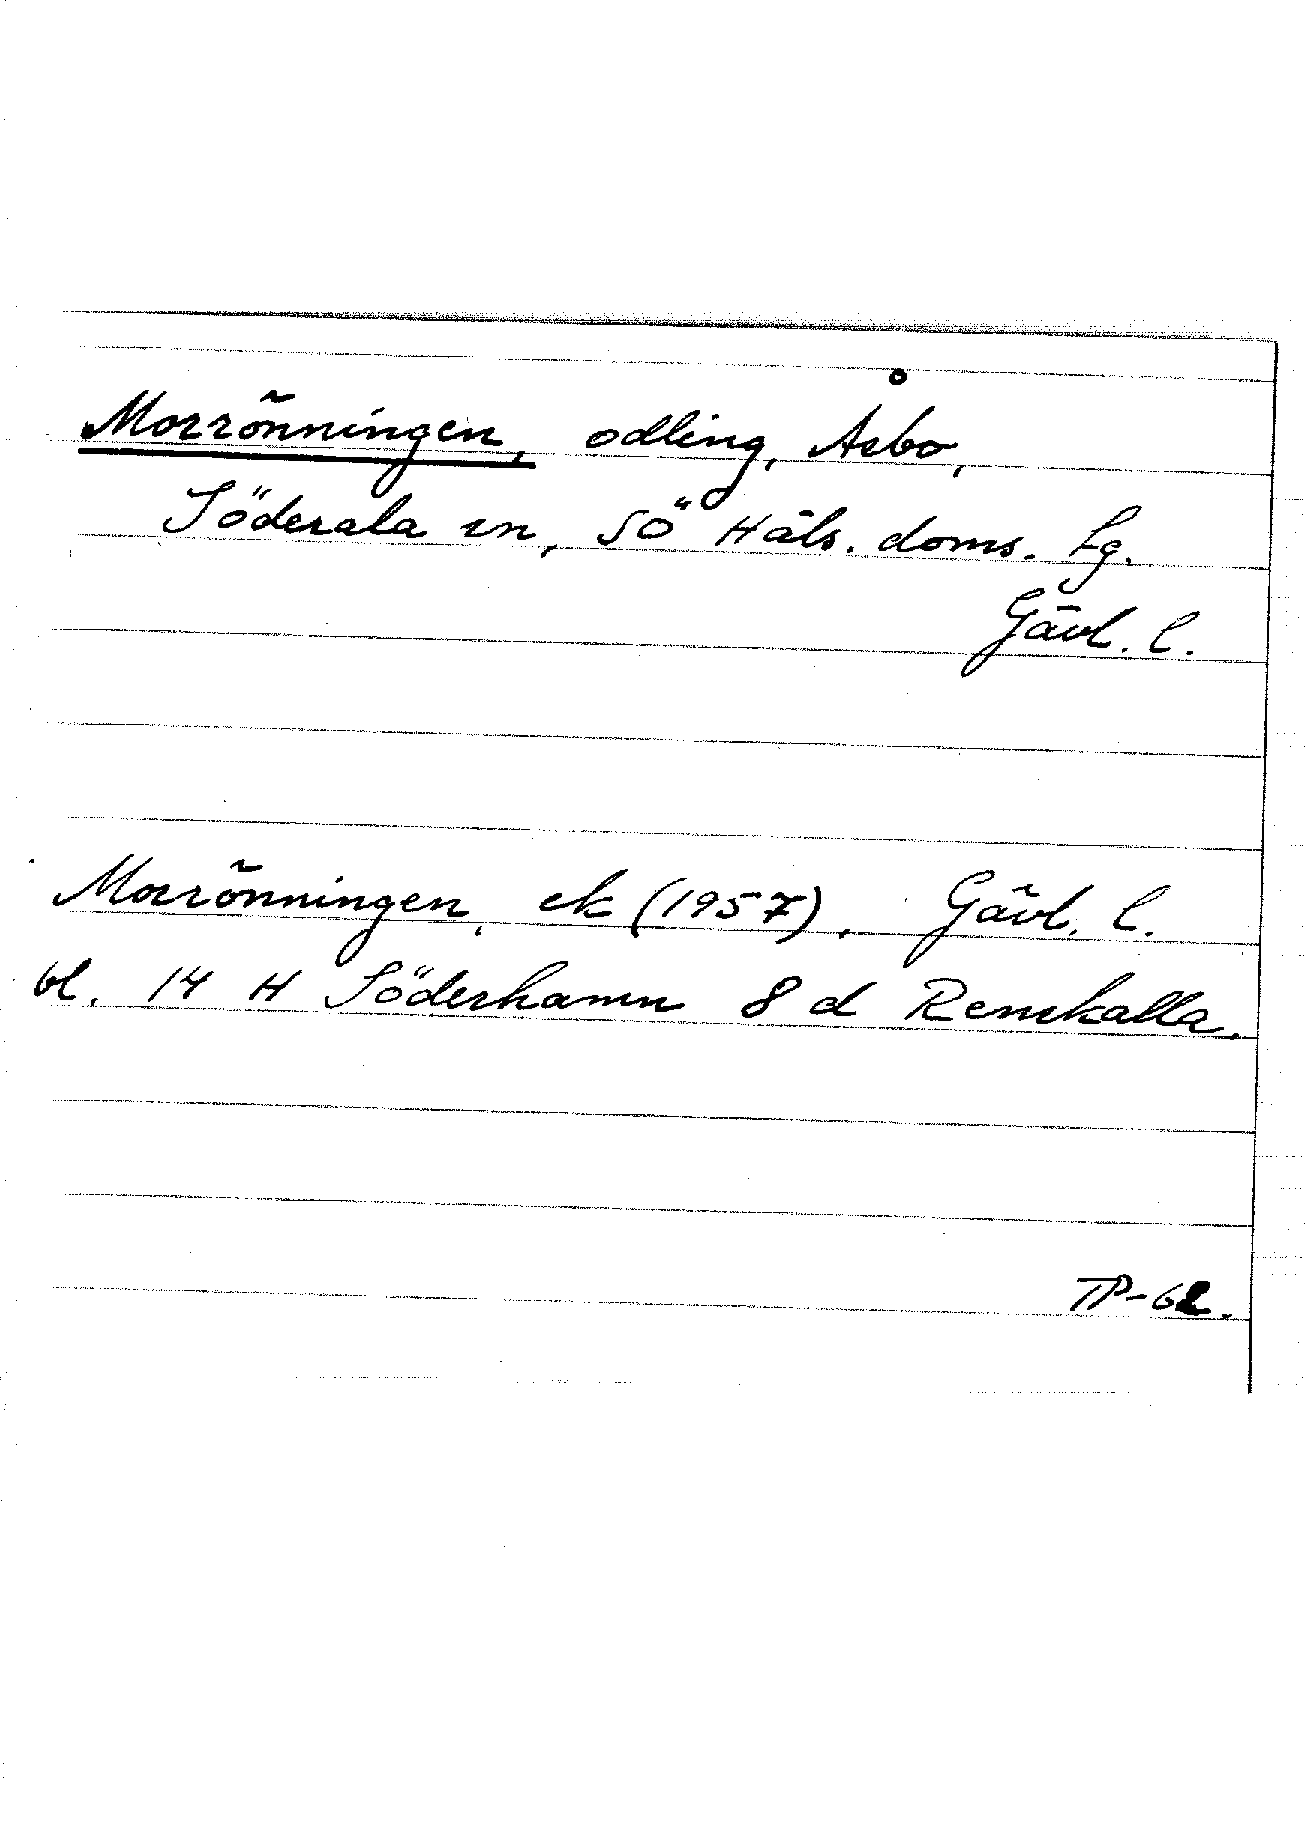 Morrönningen, odling, Åsbo,
Söderala sn, SÖ Häls. doms. lg.
Gävl. l.
Morrönningen, ek (1957), Gävl. l.
bl. 14 H Söderhamn 8 d Renskalla.
TP-62.